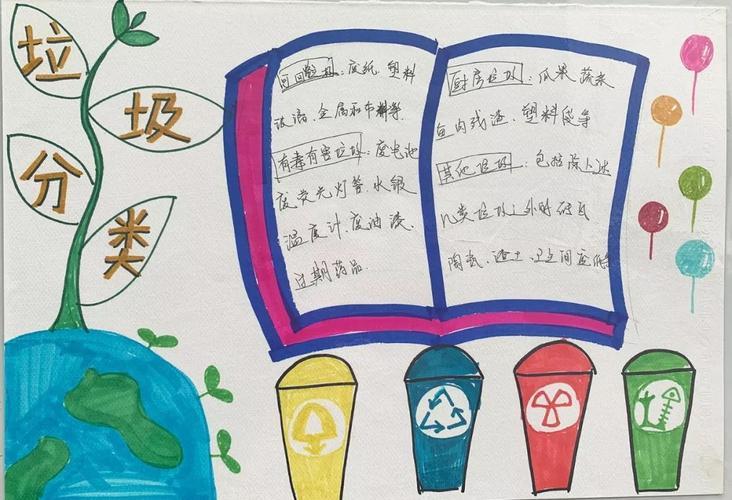 垃
圾
分
类
可回收垃圾：废纸 塑料
玻璃、金属和布料等
有毒有害垃圾：废电池
废荧光灯管、水银
温度计、废油漆、
过期药品
厨房垃圾：瓜果 蔬菜
鱼肉残渣、塑料袋等
其他垃圾：包括除上述
几类垃圾之外的砖瓦
陶瓷、渣土、卫生间废纸等